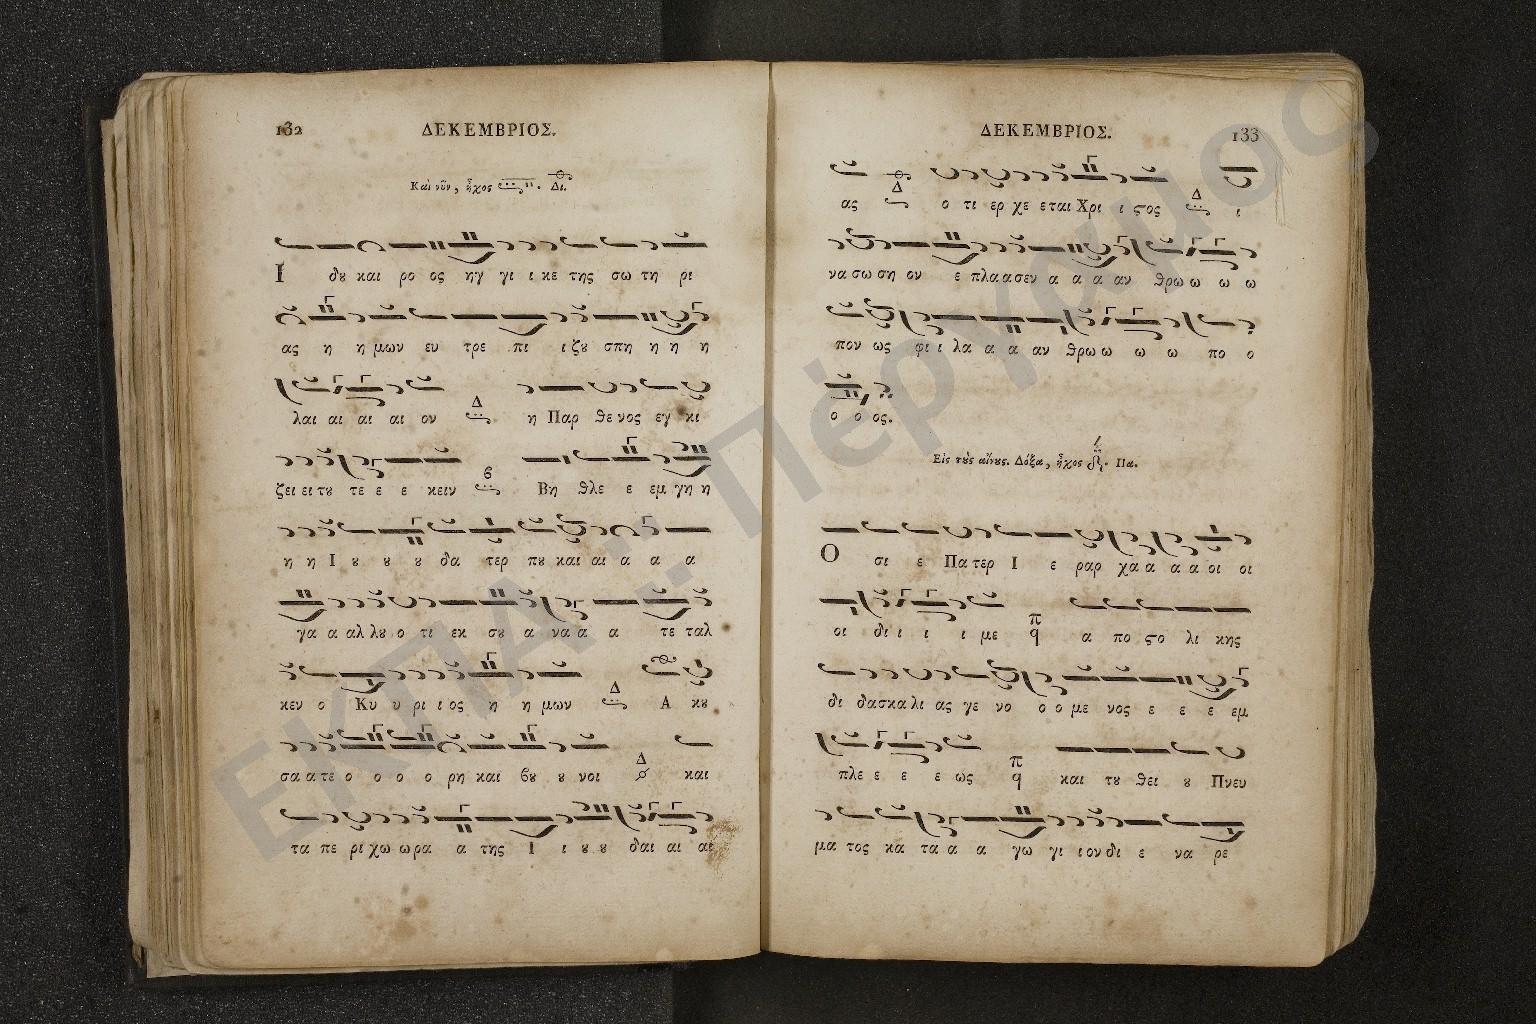 132
ΔΕΚΕΜΒΡΙΟΣ.
Καὶ νῦν, ἦχος Δι.
Ι δȣ και ρο ος ηγ γι ι κε της σω τη ρι
ας η η μων ευ τρε πι ι ζȣ σπη η η η
λαι αι αι αι ον Δ η Παρ θε νος εγ κι
ζει ει ει τȣ τε ε ε κειν ϐ Βη θλε ε εμ γη η
η η Ι ȣ ȣ ȣ δα τερ πȣ και αι α α α
γα α αλ λȣ ο τι εκ σȣ α να α α τε ταλ
κεν ο Κυ υ ρι ι ος η η μων Δ Α κȣ
σα α τε ο ο ο ο ρη και ϐȣ ȣ νοι Δ και
τα πε ρι χω ω ρα α της Ι ι ȣ ȣ δαι αι αι
ΔΕΚΕΜΒΡΙΟΣ.
133
ας Δ ο τι ερ χε εται Χρι ι ϛος Δ ι
να σω ση ον ε πλα ασεν α α α αν θρω ω ω ω
πον ως φι ι λα α α αν θρω ω ω ω πο ο
ο ο ος.
Εἰς τὺς αἴνȣς. Δόξα, ἦχος Πα.
Ο σι ε Πα τερ Ι ε ραρ χα α α α οι οι
οι δι ι ι ι με π q α πο ϛο λι κης
δι δασκα λι ας γε νο ο ο με νος ε ε ε εμ
πλε ε ε ε ως π q και τȣ θει ȣ Πνευ
μα τος κα τα α α γω γι ι ον δι ε να ρε
ΕΚΠΑ.. Πέργαμος